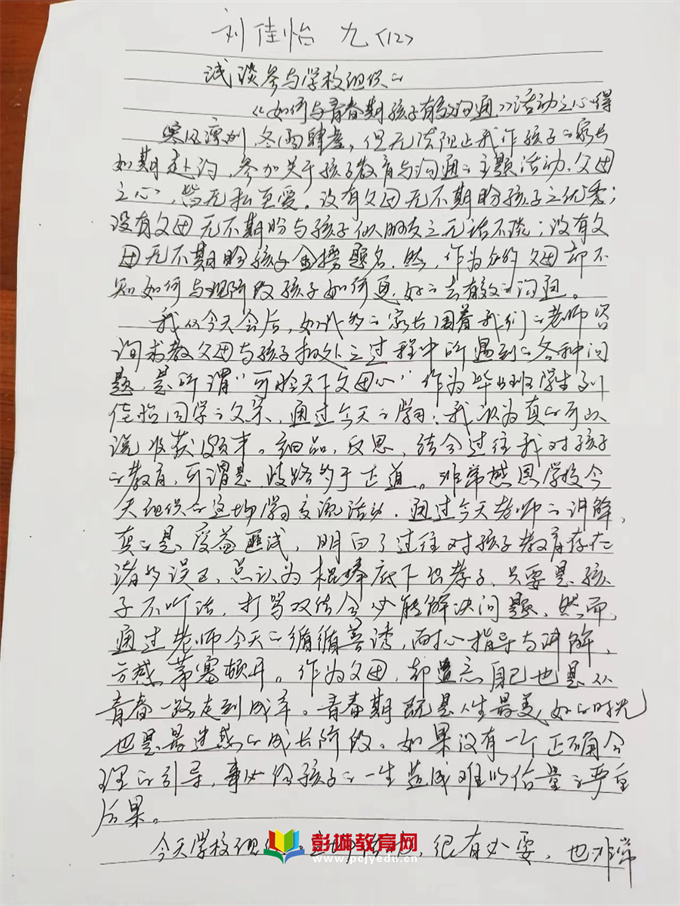 刘佳怡 九<12>
浅谈参与学校组织的
《如何与青春期孩子有效沟通》活动之心得
寒风凛冽,冬雨肆虐,但无法阻止我作孩子的家长
如期赴约,参加关于孩子教育与沟通的主题活动。父母
之心,皆无私至爱。没有父母无不期盼孩子之优秀;
没有父母无不期盼与孩子似朋友之无话不谈;没有父
母无不期盼孩子金榜题名。然,作为父母
知如何与现阶段孩子如何更好的去有效的沟通。
我从今天会后,如此多的家长围着我们的老师咨
询求教父母与孩子相处之过程中所遇到的各种问
题,是所谓“可怜天下父母心”作为毕业班学生刘
佳怡同学之父亲,通过今天之学习,我认为真的可以
说收获颇丰。细品,反思,结合过往我对孩子
的教育,可谓是
非常感恩学校今
天组织的这场学习交流活动,通过今天老师的讲解,
真的是受益匪浅,明白了过往对孩子教育存在
诸多误区,总认为棍棒底下出孝子,只要是孩
子不听话,打骂双结合必能解决问题,然而,
通过老师今天的循循善诱,耐心指导与讲解,
方感茅塞顿开。作为父母,却忘自己也是从
青春一路走到成年。青春期既是人生最美好的时光
也是最迷惑的成长阶段。如果没有一个正确合
理的引导,事必给孩子的一生造成难以估量之严重
后果。
今天学校组织
很有必要,也非常
彭城教育网
www.pcjyedu.cn